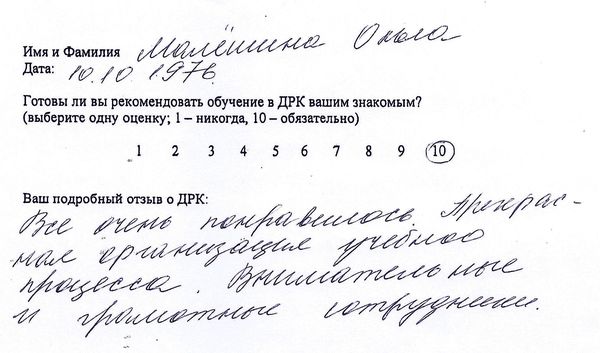 Имя и Фамилия Малёшина Ольга
Дата: 10.10 1976.
Готовы ли вы рекомендовать обучение в ДРК вашим знакомым?
(выберите одну оценку; 1 – никогда, 10 – обязательно)
1 2 3 4 5 6 7 8 9 10
Ваш подробный отзыв о ДРК:
Все очень понравилось. Прекрас-
ная организация учебного
процесса. Внимательные
и грамотные сотрудники.